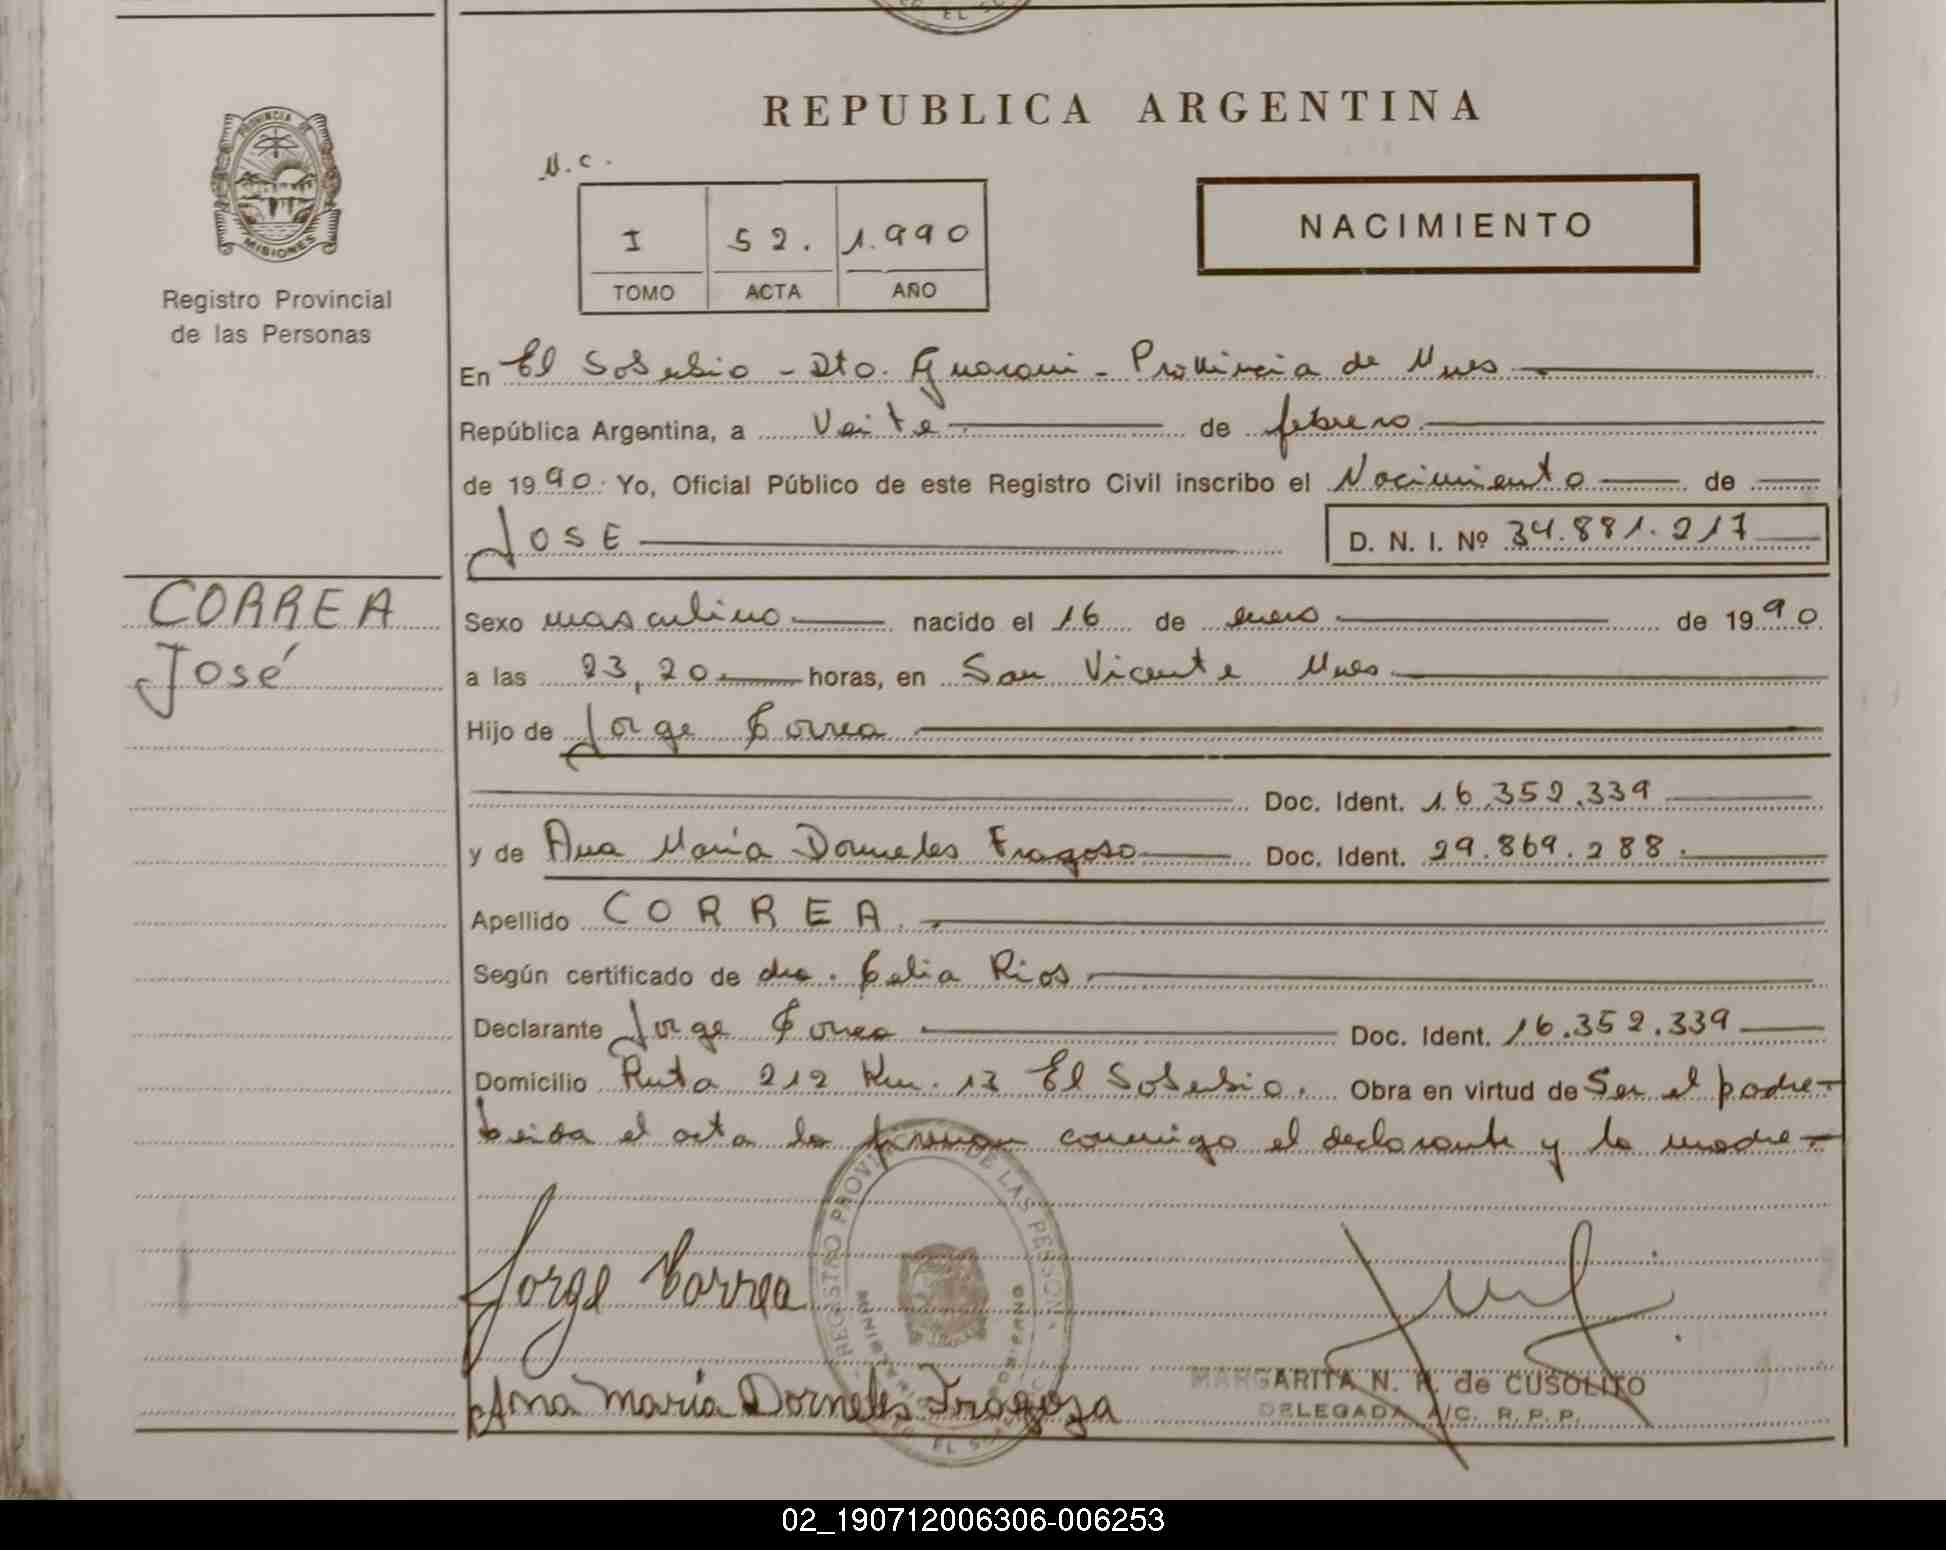 EL SO
REPUBLICA ARGENTINA
PROVINCIA DE
MISIONES
Registro Provincial
de las Personas
N.C.
I 52. 1.990
TOMO ACTA AÑO
NACIMIENTO
En El Soberbio - Dto. Guarani - Provincia de Mnes
República Argentina, a Veite de febrero
de 1990. Yo, Oficial Público de este Registro Civil inscribo el Nacimiento de
JOSE D. N. I. Nº 34.881.217
CORREA
José
Sexo masculino nacido el 16 de enero de 1990
a las 23,20 horas, en San Vicente Mnes
Hijo de Jorge Correa
Doc. Ident. 16.352.339
y de Ana María Dorneles Fragoso Doc. Ident. 29.869.288.
Apellido CORREA.
Según certificado de dra. Celia Rios
Declarante Jorge Correa Doc. Ident. 16.352.339
Domicilio Ruta 212 Km. 13 El Soberbio. Obra en virtud de Ser el padre-
Leida el acta la firman conmigo el declarante y la madre-
REGISTRO PROVINCIAL DE LAS PERSONAS
Jorge Correa
Ana María Dorneles Fragoza
MARGARITA N. R. de CUSOLITO
DELEGADA A/C. R. P. P.
02_190712006306-006253